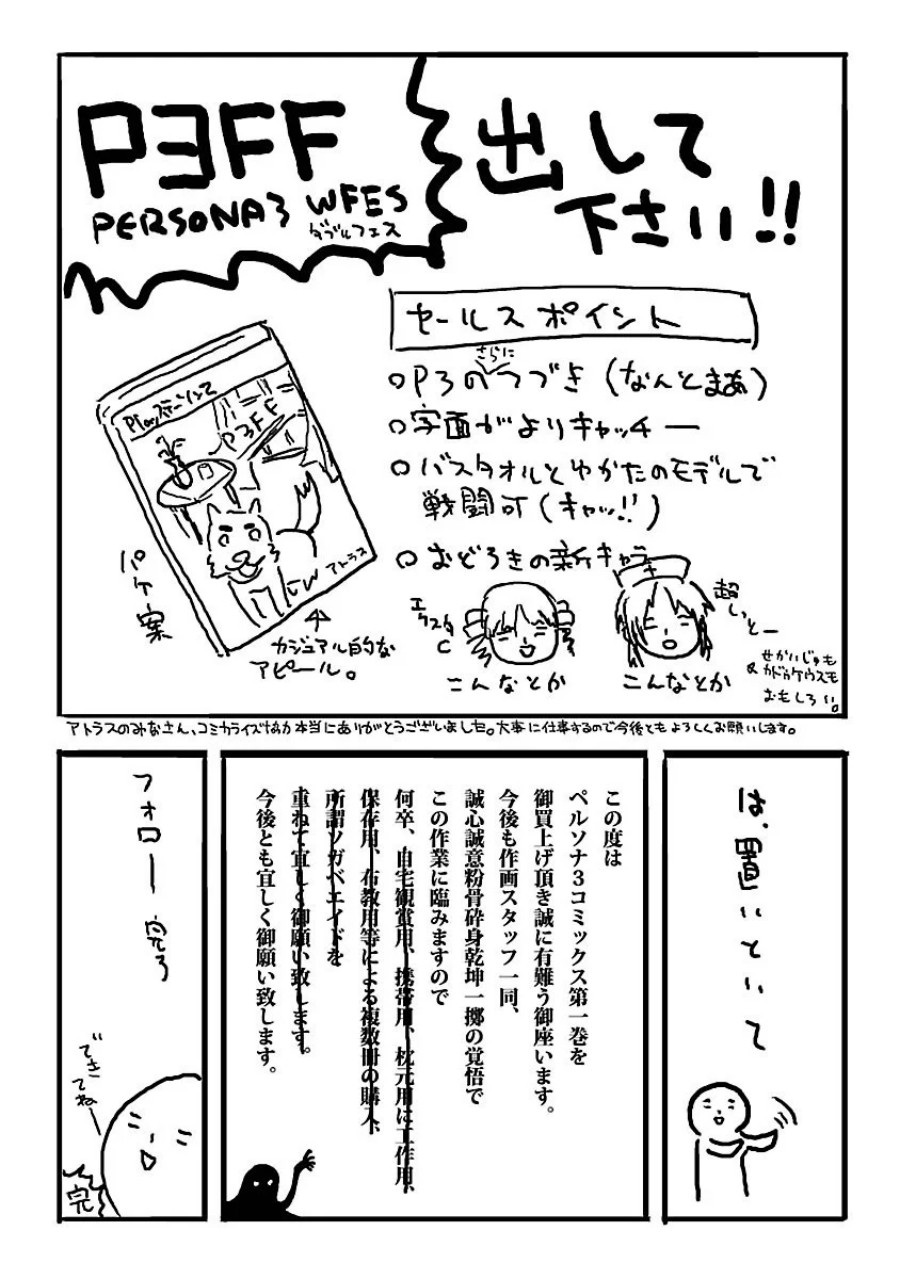 P3FF
PERSONA3 WFES
ダブルフェス
出して
下さい!!
セールスポイント
○P3のさらにつづき(なんとまあ)
○字面がよりキャッチー
○バスタオルとゆかたのモデルで
戦闘可(キャッ!!)
○おどろきの新キャラ
Playステーション2
P3FF
アトラス
パケ案
カジュアル的な
アピール。
こんなとか
超しっとー
こんなとか
せかいじゅも
&カドゥケウスも
おもしろい。
アトラスのみなさん、コミカライズ協力本当にありがとうございました。大事に仕事するので今後ともよろしくお願いします。
は、置いといて
この度は
ペルソナ3コミックス第一巻を
御買上げ頂き誠に有難う御座います。
今後も作画スタッフ一同、
誠心誠意粉骨砕身乾坤一擲の覚悟で
この作業に臨みますので
何卒、自宅観賞用、携帯用、枕元用に工作用、
保存用、布教用等による複数冊の購入、
所謂ソガベエイドを
重ねて宜しく御願い致します。
今後とも宜しく御願い致します。
フォロー完了
できてねー
完